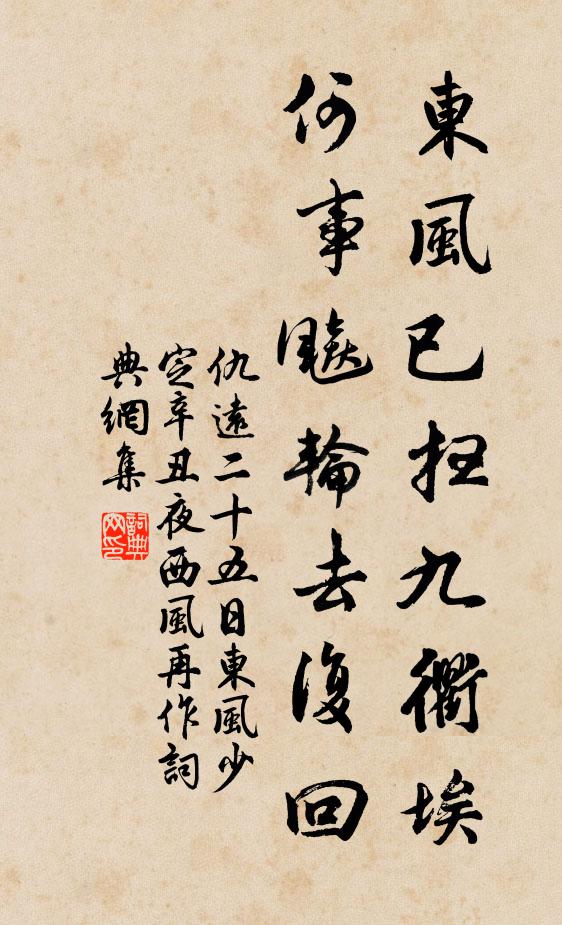 東風已掃九衢埃
何事飈輪去復回
仇遠二十五日東風少
定辛丑夜西風再作詞
典網集
詞典
网印